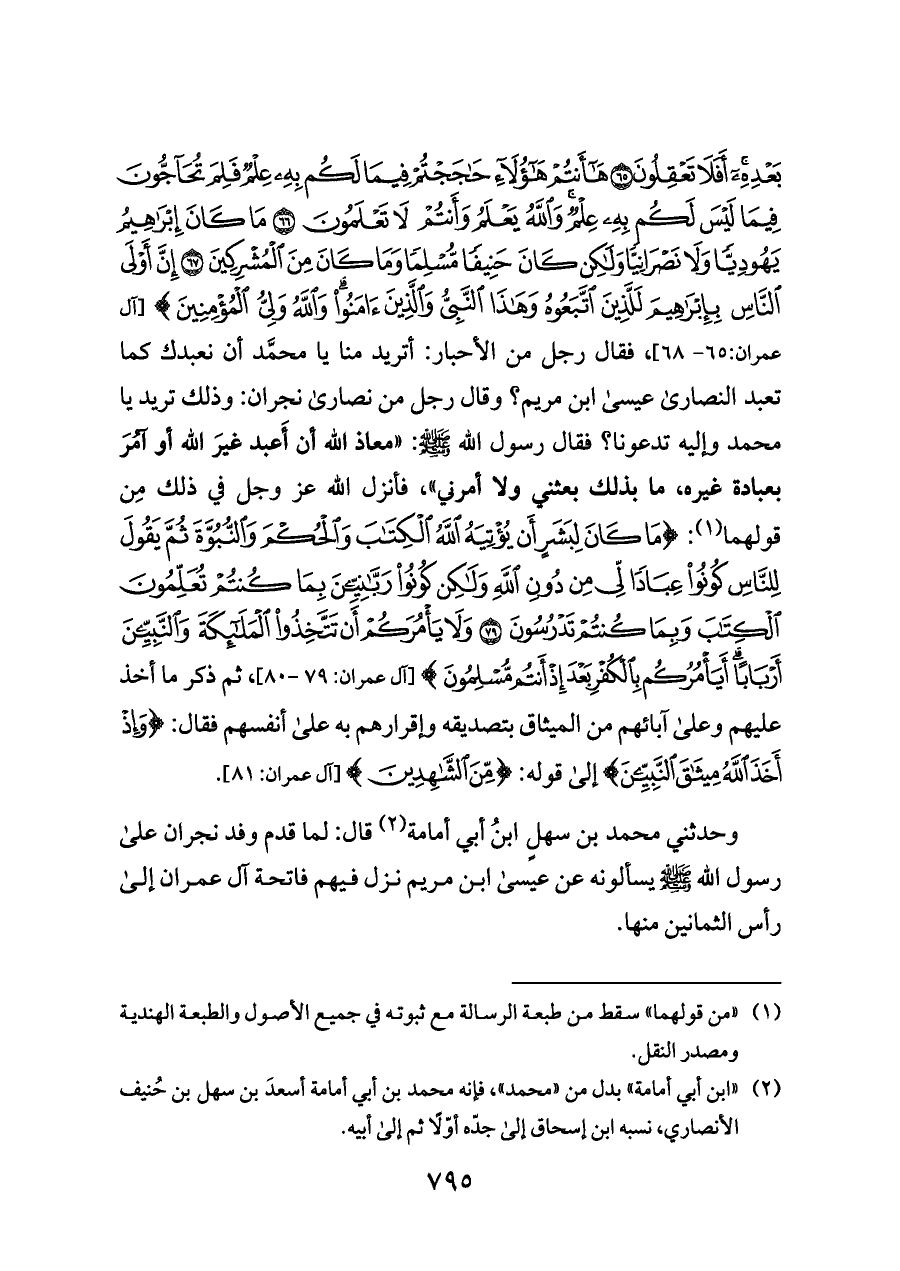 بَعْدِهِۦٓۚ أَفَلَا تَعْقِلُونَ ۝٦٥ هَٰٓأَنتُمْ هَٰٓؤُلَآءِ حَٰجَجْتُمْ فِيمَا لَكُم بِهِۦ عِلْمٌ فَلِمَ تُحَآجُّونَ
فِيمَا لَيْسَ لَكُم بِهِۦ عِلْمٌۚ وَٱللَّهُ يَعْلَمُ وَأَنتُمْ لَا تَعْلَمُونَ ۝٦٦ مَا كَانَ إِبْرَٰهِيمُ
يَهُودِيًّا وَلَا نَصْرَانِيًّا وَلَٰكِن كَانَ حَنِيفًا مُّسْلِمًا وَمَا كَانَ مِنَ ٱلْمُشْرِكِينَ ۝٦٧ إِنَّ أَوْلَى
ٱلنَّاسِ بِإِبْرَٰهِيمَ لَلَّذِينَ ٱتَّبَعُوهُ وَهَٰذَا ٱلنَّبِىُّ وَٱلَّذِينَ ءَامَنُوا۟ۗ وَٱللَّهُ وَلِىُّ ٱلْمُؤْمِنِينَ﴾ [آل
عمران:٦٥- ٦٨]، فقال رجل من الأحبار: أتريد منا يا محمَّد أن نعبدك كما
تعبد النصارىٰ عيسىٰ ابن مريم؟ وقال رجل من نصارىٰ نجران: وذلك تريد يا
محمد وإليه تدعونا؟ فقال رسول الله ﷺ: «معاذ الله أن أَعبد غيرَ الله أو آمُرَ
بعبادة غيره، ما بذلك بعثني ولا أمرني»، فأنزل الله عز وجل في ذلك مِن
قولهما(١): ﴿مَا كَانَ لِبَشَرٍ أَن يُؤْتِيَهُ ٱللَّهُ ٱلْكِتَٰبَ وَٱلْحُكْمَ وَٱلنُّبُوَّةَ ثُمَّ يَقُولَ
لِلنَّاسِ كُونُوا۟ عِبَادًا لِّى مِن دُونِ ٱللَّهِ وَلَٰكِن كُونُوا۟ رَبَّٰنِيِّـۧنَ بِمَا كُنتُمْ تُعَلِّمُونَ
ٱلْكِتَٰبَ وَبِمَا كُنتُمْ تَدْرُسُونَ ۝٧٩ وَلَا يَأْمُرَكُمْ أَن تَتَّخِذُوا۟ ٱلْمَلَٰٓئِكَةَ وَٱلنَّبِيِّـۧنَ
أَرْبَابًاۗ أَيَأْمُرُكُم بِٱلْكُفْرِ بَعْدَ إِذْ أَنتُم مُّسْلِمُونَ﴾ [آل عمران: ٧٩ -٨٠]، ثم ذكر ما أخذ
عليهم وعلىٰ آبائهم من الميثاق بتصديقه وإقرارهم به علىٰ أنفسهم فقال: ﴿وَإِذْ
أَخَذَ ٱللَّهُ مِيثَٰقَ ٱلنَّبِيِّـۧنَ﴾ إلىٰ قوله: ﴿مِّنَ ٱلشَّٰهِدِينَ﴾ [آل عمران: ٨١].
وحدثني محمد بن سهلٍ ابنُ أبي أمامة(٢) قال: لما قدم وفد نجران علىٰ
رسول الله ﷺ يسألونه عن عيسىٰ ابن مريم نزل فيهم فاتحة آل عمران إلىٰ
رأس الثمانين منها.
(١) «من قولهما» سقط من طبعة الرسالة مع ثبوته في جميع الأصول والطبعة الهندية
ومصدر النقل.
(٢) «ابن أبي أمامة» بدل من «محمد»، فإنه محمد بن أبي أمامة أسعدَ بن سهل بن حُنيف
الأنصاري، نسبه ابن إسحاق إلىٰ جدّه أوّلًا ثم إلىٰ أبيه.
٧٩٥